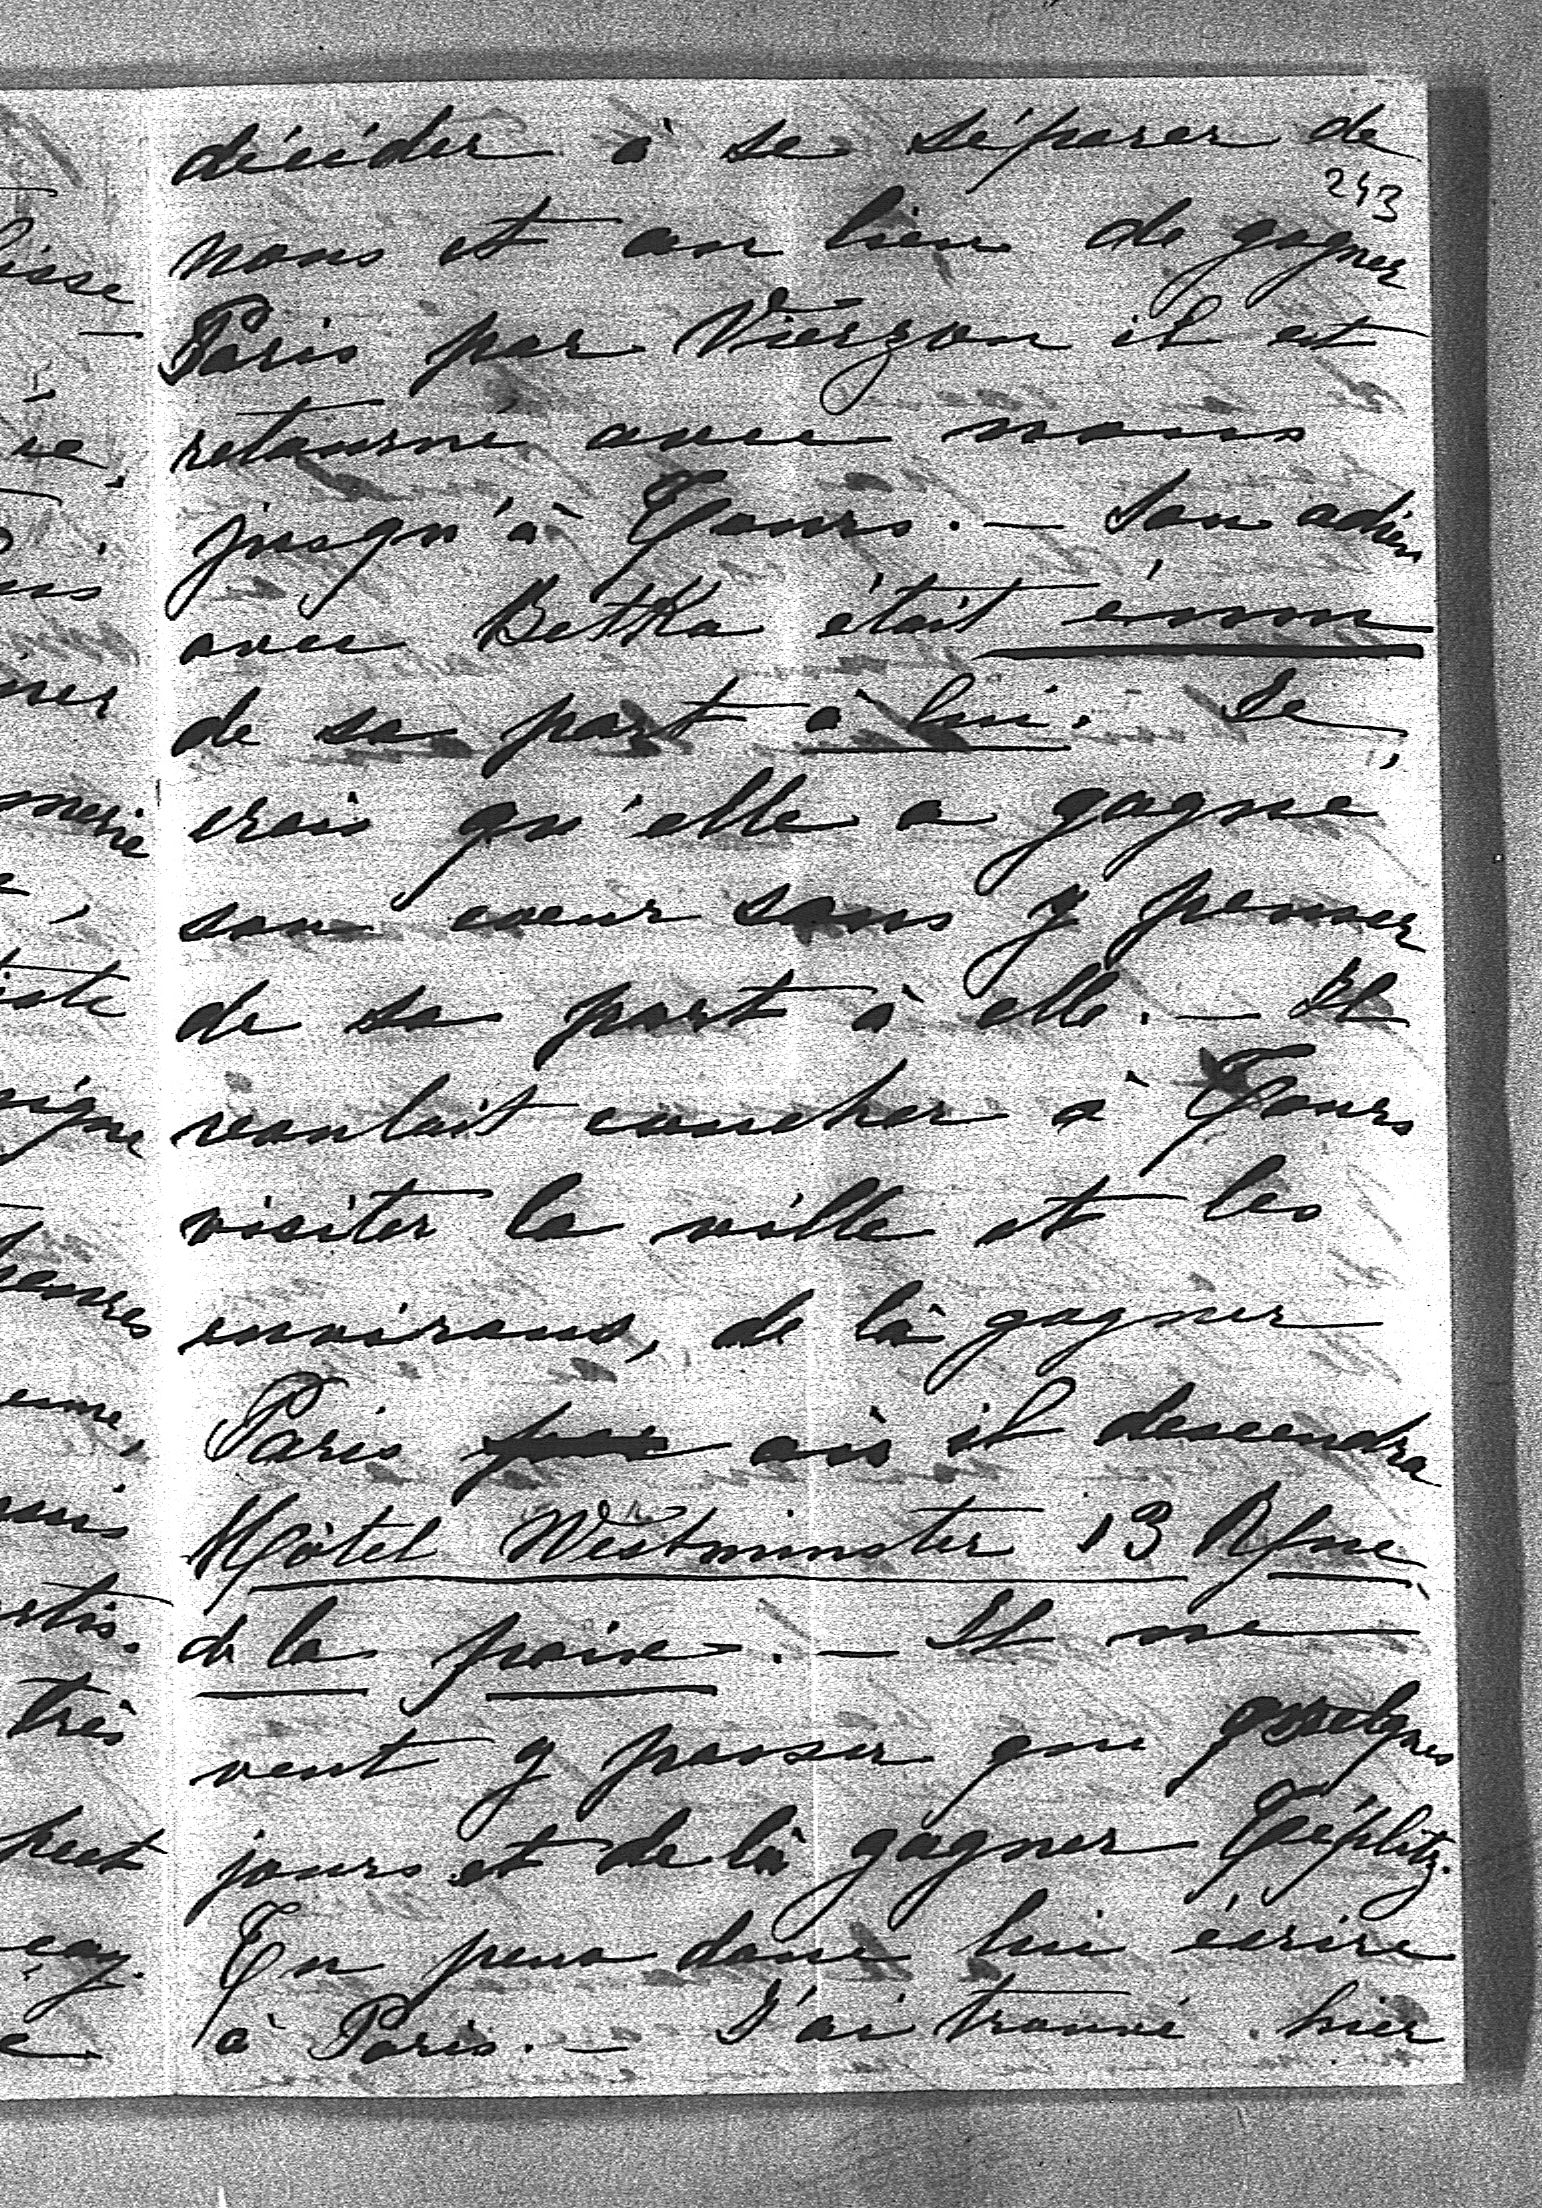 décider à se séparer de
243
nous et au lieu de gagner
Paris par Vierzon il est
retourné avec nous
jusqu'à Tours. — Son adieu
avec Betka était émou
de sa part à lui. Je
crois qu'elle a gagné
son coeur sans y penser
de sa part à elle. — Il
voulait coucher à Tours
visiter la ville et les
environs, de là gagner
Paris où il descendra
Hôtel Westminster 13 Rue
de la paix. — Il ne
veut y passer que quelques
jours et de là gagner Téplitz.
Tu peux donc lui écrire
à Paris. — J'ai trouvé hier